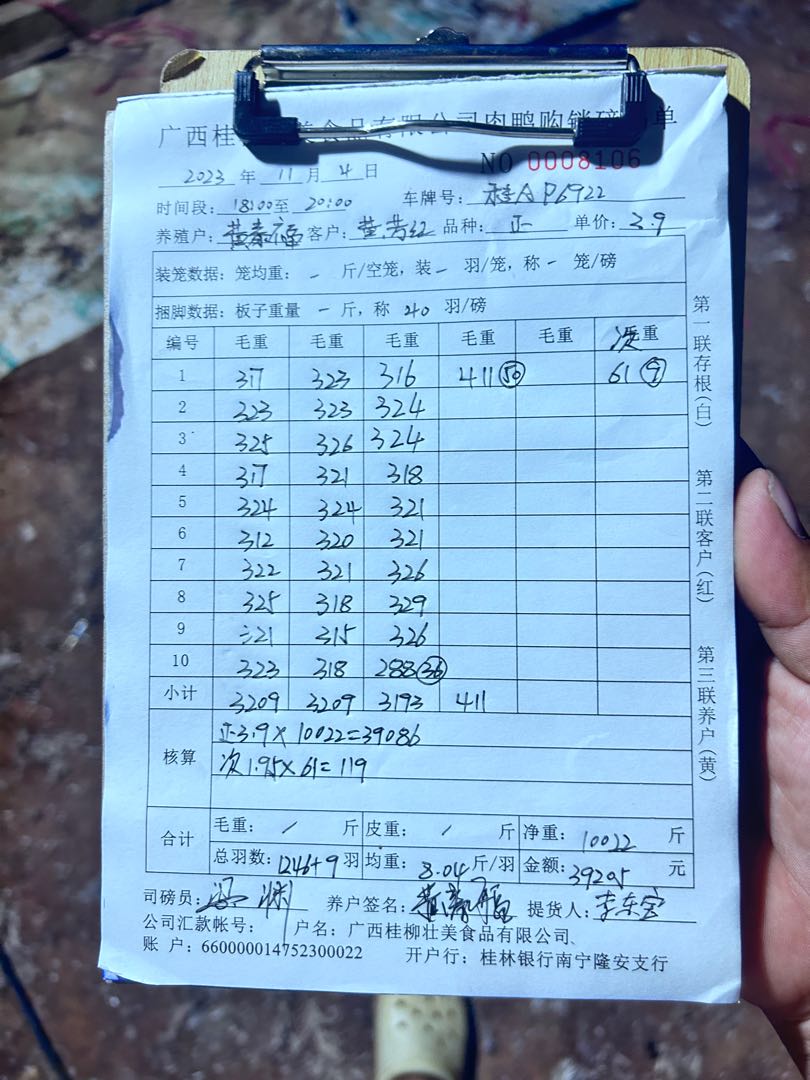 广西桂 美食品有限公司肉鸭购销磅 单
NO 0008106
2023 年 11 月 4 日
时间段: 18:00至 20:00 车牌号: 桂A P6922
养殖户: 黄春福 客户: 黄芳红 品种: 正 单价: 3.9
装笼数据: 笼均重: - 斤/空笼, 装 - 羽/笼, 称 - 笼/磅
捆脚数据: 板子重量 - 斤, 称 40 羽/磅
编号 毛重 毛重 毛重 毛重 毛重 次 重
1 317 323 316 411 50 61 9
2 323 323 324
3 325 326 324
4 317 321 318
5 324 324 321
6 312 320 321
7 322 321 326
8 325 318 329
9 321 315 326
10 323 318 288 36
小计 3209 3209 3193 411
核算
正3.9×10022=39086
次1.95×61=119
合计
毛重: / 斤 皮重: / 斤 净重: 10022 斤
总羽数: 1246+9 羽 均重: 8.04 斤/羽 金额: 39205 元
司磅员: 养户签名: 黄春福 提货人: 李东宝
公司汇款帐号: 户名: 广西桂柳壮美食品有限公司
账 户: 660000014752300022 开户行: 桂林银行南宁隆安支行
第一联存根(白)
第二联客户(红)
第三联养户(黄)